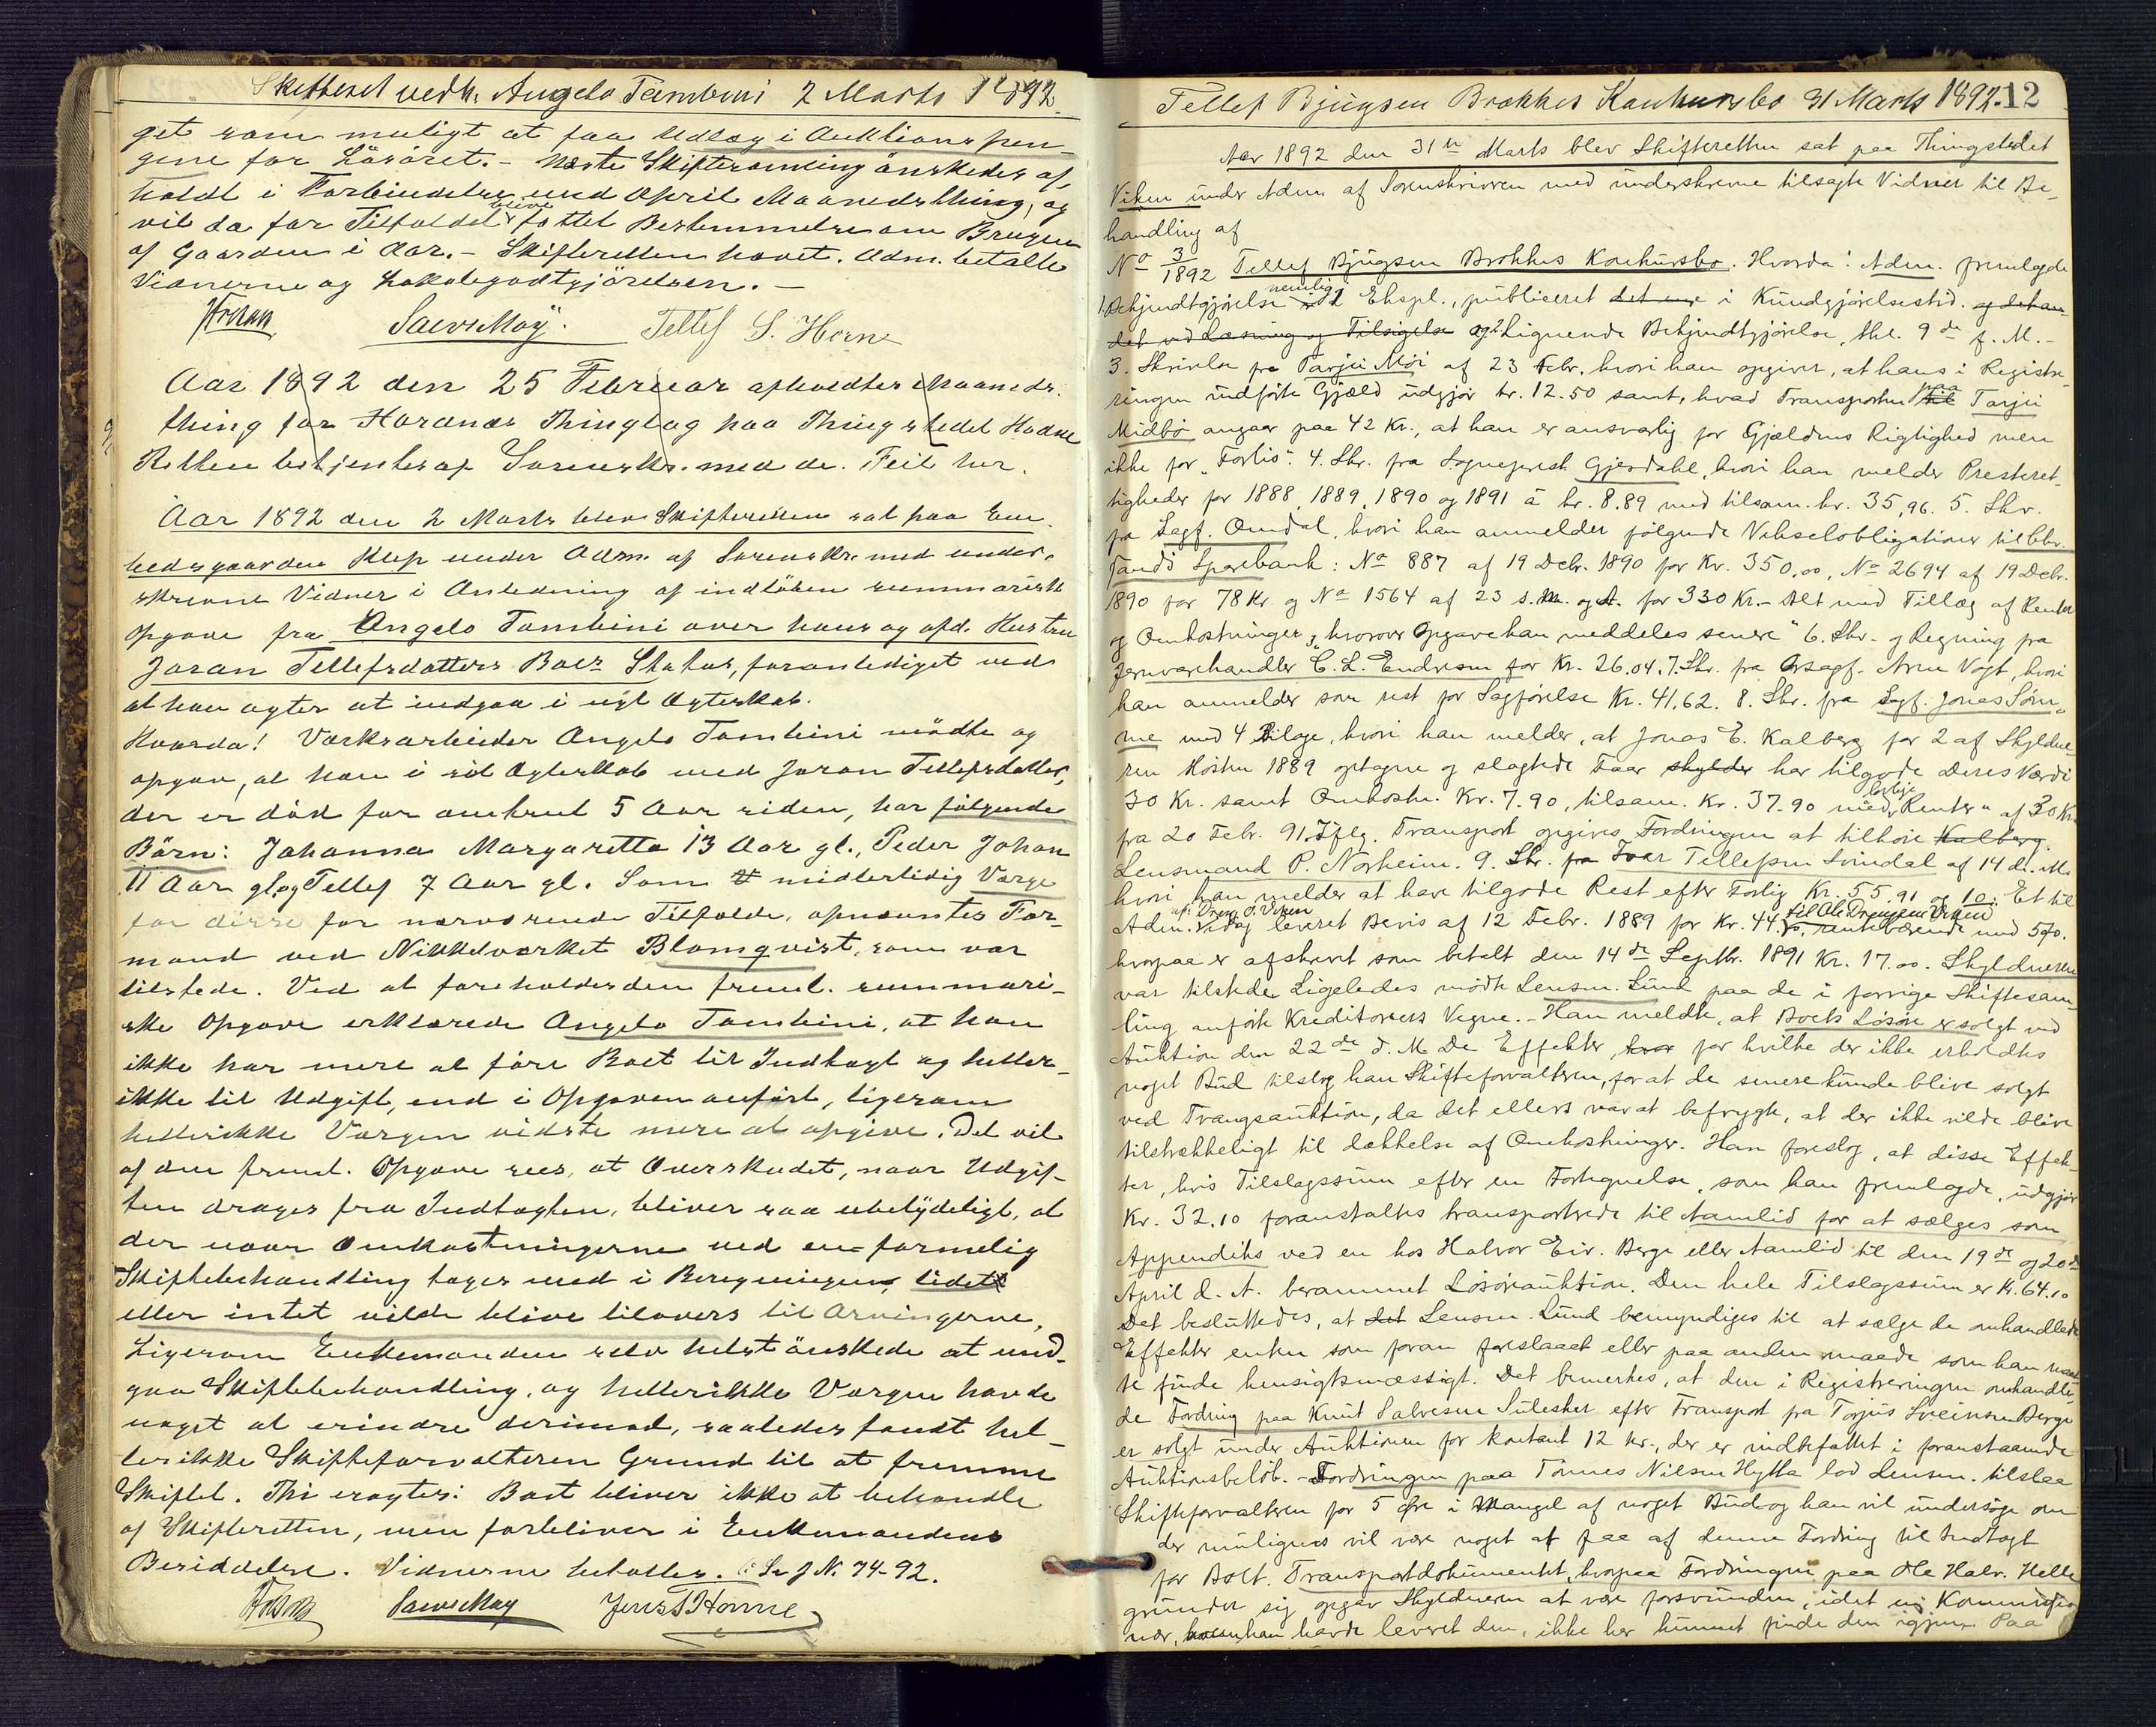 Skifteret vedk. Angelo Tambini 2 Marts 1892.
get som muligt at faa Udlæg i Auktionspen-
gene for Løsøret. - Næste Skiftesamling ønskedes af-
holdt i Forbindelse med April Maanedsthing, og
vil da for Tilfældet blive fattet Bestemmelse om Brugen
af Gaarden i Aar. - Skifteretten hævet. Adm. betalte
Vidnerne og Lokalegodtgjørelsen. -
Tellef S. Horne
Aar 1892 den 25 Februar afholdtes Maaneds-
thing for Hordnæs Thinglag paa Thingstedet
Retten betjentes af Sorenskr. med de. Feil her.
Aar 1892 den 2 Marts blev Skifteretten sat paa Em-
bedsgaarden Klep under Adm. af Sorenskr. med under-
skrevne Vidner i Anledning af indløben summarisk
Opgave fra Angelo Tambini over hans og afd. Hustru
Joran Tellefsdatters Boes Status, foranlediget ved
at han agter at indgaa i nyt Ægteskab.
Hvorda! Værksarbeider Angelo Tambini mødte og
opgav, at han i sit Ægteskab med Joran Tellefsdatter,
der er død for omtrent 5 Aar siden, har følgende
Børn: Johanna Margaretta 13 Aar gl., Peder Johan
11 Aar gl. og Tellef 7 Aar gl. Som midlertidig Værge
for disse for nærværende Tilfælde, opnævntes For-
mand ved Nikkelværket Blomqvist, som var
tilstede. Ved at foreholdes den freml. summari-
ske Opgave erklærede Angelo Tambini, at han
ikke har mere at føre Boet til Indtægt og heller
ikke til Udgift, end i Opgaven anført, ligesom
hellerikke Værgen vidste mere at opgive. Det vil
af den freml. Opgave sees, at Overskudet, naar Udgif-
ten drages fra Indtægten, bliver saa ubetydeligt, at
der naar Omkostningerne ved en formelig
Skiftebehandling tages med i Beregningen, lidet
eller intet vilde blive tilovers til Arvingerne,
Ligesom Enkemanden selv helst ønskede at und-
gaa Skiftebehandling, og hellerikke Værgen havde
noget at erindre derimod, saaledes fandt hel-
lerikke Skifteforvalteren Grund til at fremme
Skiftet. Thi eragtes: Boet bliver ikke at behandle
af Skifteretten, men forbliver i Enkemandens
Besiddelse. Vidnerne betaltes. Se J N. 74-92.
Jens T Horne
Tellef Bjugsen Brokkes Konkursbo 31 Marts 1892. 12
Aar 1892 den 31te Marts blev Skifteretten sat paa Thingstedet
Viken under Adm. af Sorenskriveren med underskrevne tilsagte Vidner til Be-
handling af
No 3/1892 Tellef Bjugsen Brokkes Konkursbo. Hvorda! Adm. fremlagde
1. Bekjendtgjørelse nemlig i 2 Ekspl., publiceret det ene i Kundgjørelsestid. og det an-
det ved Læsning og Tilsigelse og 2. Lignende Bekjendtgjørelse, Skl. 9de f. M. -
3. Skrivelse fra Tarjei Moi af 23 Febr. hvori han opgiver, at hans i Registre-
ringen indførte Gjæld udgjør kr. 12.50 samt, hvad Transporten til paa Tarjei
Midbø angaar paa 42 Kr., at han er ansvarlig for Gjældens Rigtighed men
ikke for „Forlis". 4. Skr. fra Sogneprest Gjesdahl, hvori han melder Presteret-
tigheder for 1888, 1889, 1890 og 1891 à kr. 8.89 med tilsam. kr. 35,96. 5. Skr.
fra Sagf. Omdal, hvori han anmelder følgende Vekselobligationer
Sparebank: No 887 af 19 Debr. 1890 for Kr. 350.00, No 2694 af 19 Debr.
1890 for 78 Kr og No 1564 af 23 s. M. og A. for 330 Kr. - Alt med Tillæg af Renter
og Omkostninger, „hvorover Opgave kan meddeles senere" 6. Skr. og Regning fra
Jernvarehandler C. L. Endresen for Kr. 26.04. 7. Skr. fra Orsagf. Arne Vogt, hvori
han anmelder som rest for Sagførelse Kr. 41.62. 8. Skr. fra Sagf. Jonas Søm-
me med 4 Bilage, hvori han melder, at Jonas E. Kalberg for 2 af Skyldne-
ren Høsten 1889 optagne og slagtede Faar skylder har tilgode Deres Værdi
30 Kr. samt Omkostn. Kr. 7.90, tilsam. Kr. 37.90 med lovlige Renter af 30 Kr.
fra 20 Febr. 91. Iflg. Transport opgives Fordringen at tilhøre Kalberg
Lensmand P. Norheim. 9. Skr. fra Ivar Tellefsen Svindal af 14 d. M.
hvori han melder at have tilgode Rest efter Forlig Kr. 55.91 og 10. Et til
Adm. idag af Dreng O. Viken leveret Bevis af 12 Febr. 1889 for Kr. 44. til Ole Drengsen Viken rentebærende med 5%
hvorpaa er afskrevet som betalt den 14de Septbr. 1891 Kr. 17.00. Skyldneren
var tilstede Ligeledes mødte Lensm. Lund paa de i forrige Skiftesam-
ling anførte Kreditorers Vegne. - Han meldte, at Boets Løsøre er solgt ved
Auktion den 22de d. M. De Effekter, hvor for hvilke der ikke erholdtes
noget Bud tilslog han Skifteforvalteren, for at de senere kunde blive solgt
ved Tvangsauktion, da det ellers var at befrygte, at der ikke vilde blive
tilstrækkeligt til Dækkelse af Omkostninger. Han foreslog, at disse Effek-
ter, hvis Tilslagssum efter en Fortegnelse, som han fremlagde, udgjør
Kr. 32.10 foranstaltes transporterede til Aamlid for at sælges som
Appendiks ved en hos Halvor Eiv. Berge eller Aamlid til den 19de og 20de
April d. A. berammet Løsøreauktion. Den hele Tilslagssum er Kr. 64.10
Det besluttedes, at det Lensm. Lund bemyndiges til at sælge de omhandlede
Effekter enten som foran foreslaaet eller paa anden maade som han maat-
te finde hensigtsmæssigt. Det bemerkes, at den i Registreringen omhandle-
de Fordring paa Knut Salvesen Sulesker efter Transport fra Torjus Sveinsen Berge
er solgt under Auktionen for kontant 12 kr., der er indbefattet i foranstaaende
Auktionsbeløb. - Fordringen paa Tønnes Nilsen Hytta lod Lensm. tilslaa
Skifteforvalteren for 5 Øre i Mangel af noget Bud og han vil undersøge om
der muligens vil være noget at faa af denne Fordring til Indtægt
for Boet. Transportdokumentet, hvorpaa Fordringen paa Ole Halv. Helle
grunder sig opgav Skyldneren at være forsvunden, idet en Kommissio-
nær, han havde leveret den, ikke har kunnet finde den igjen. Paa